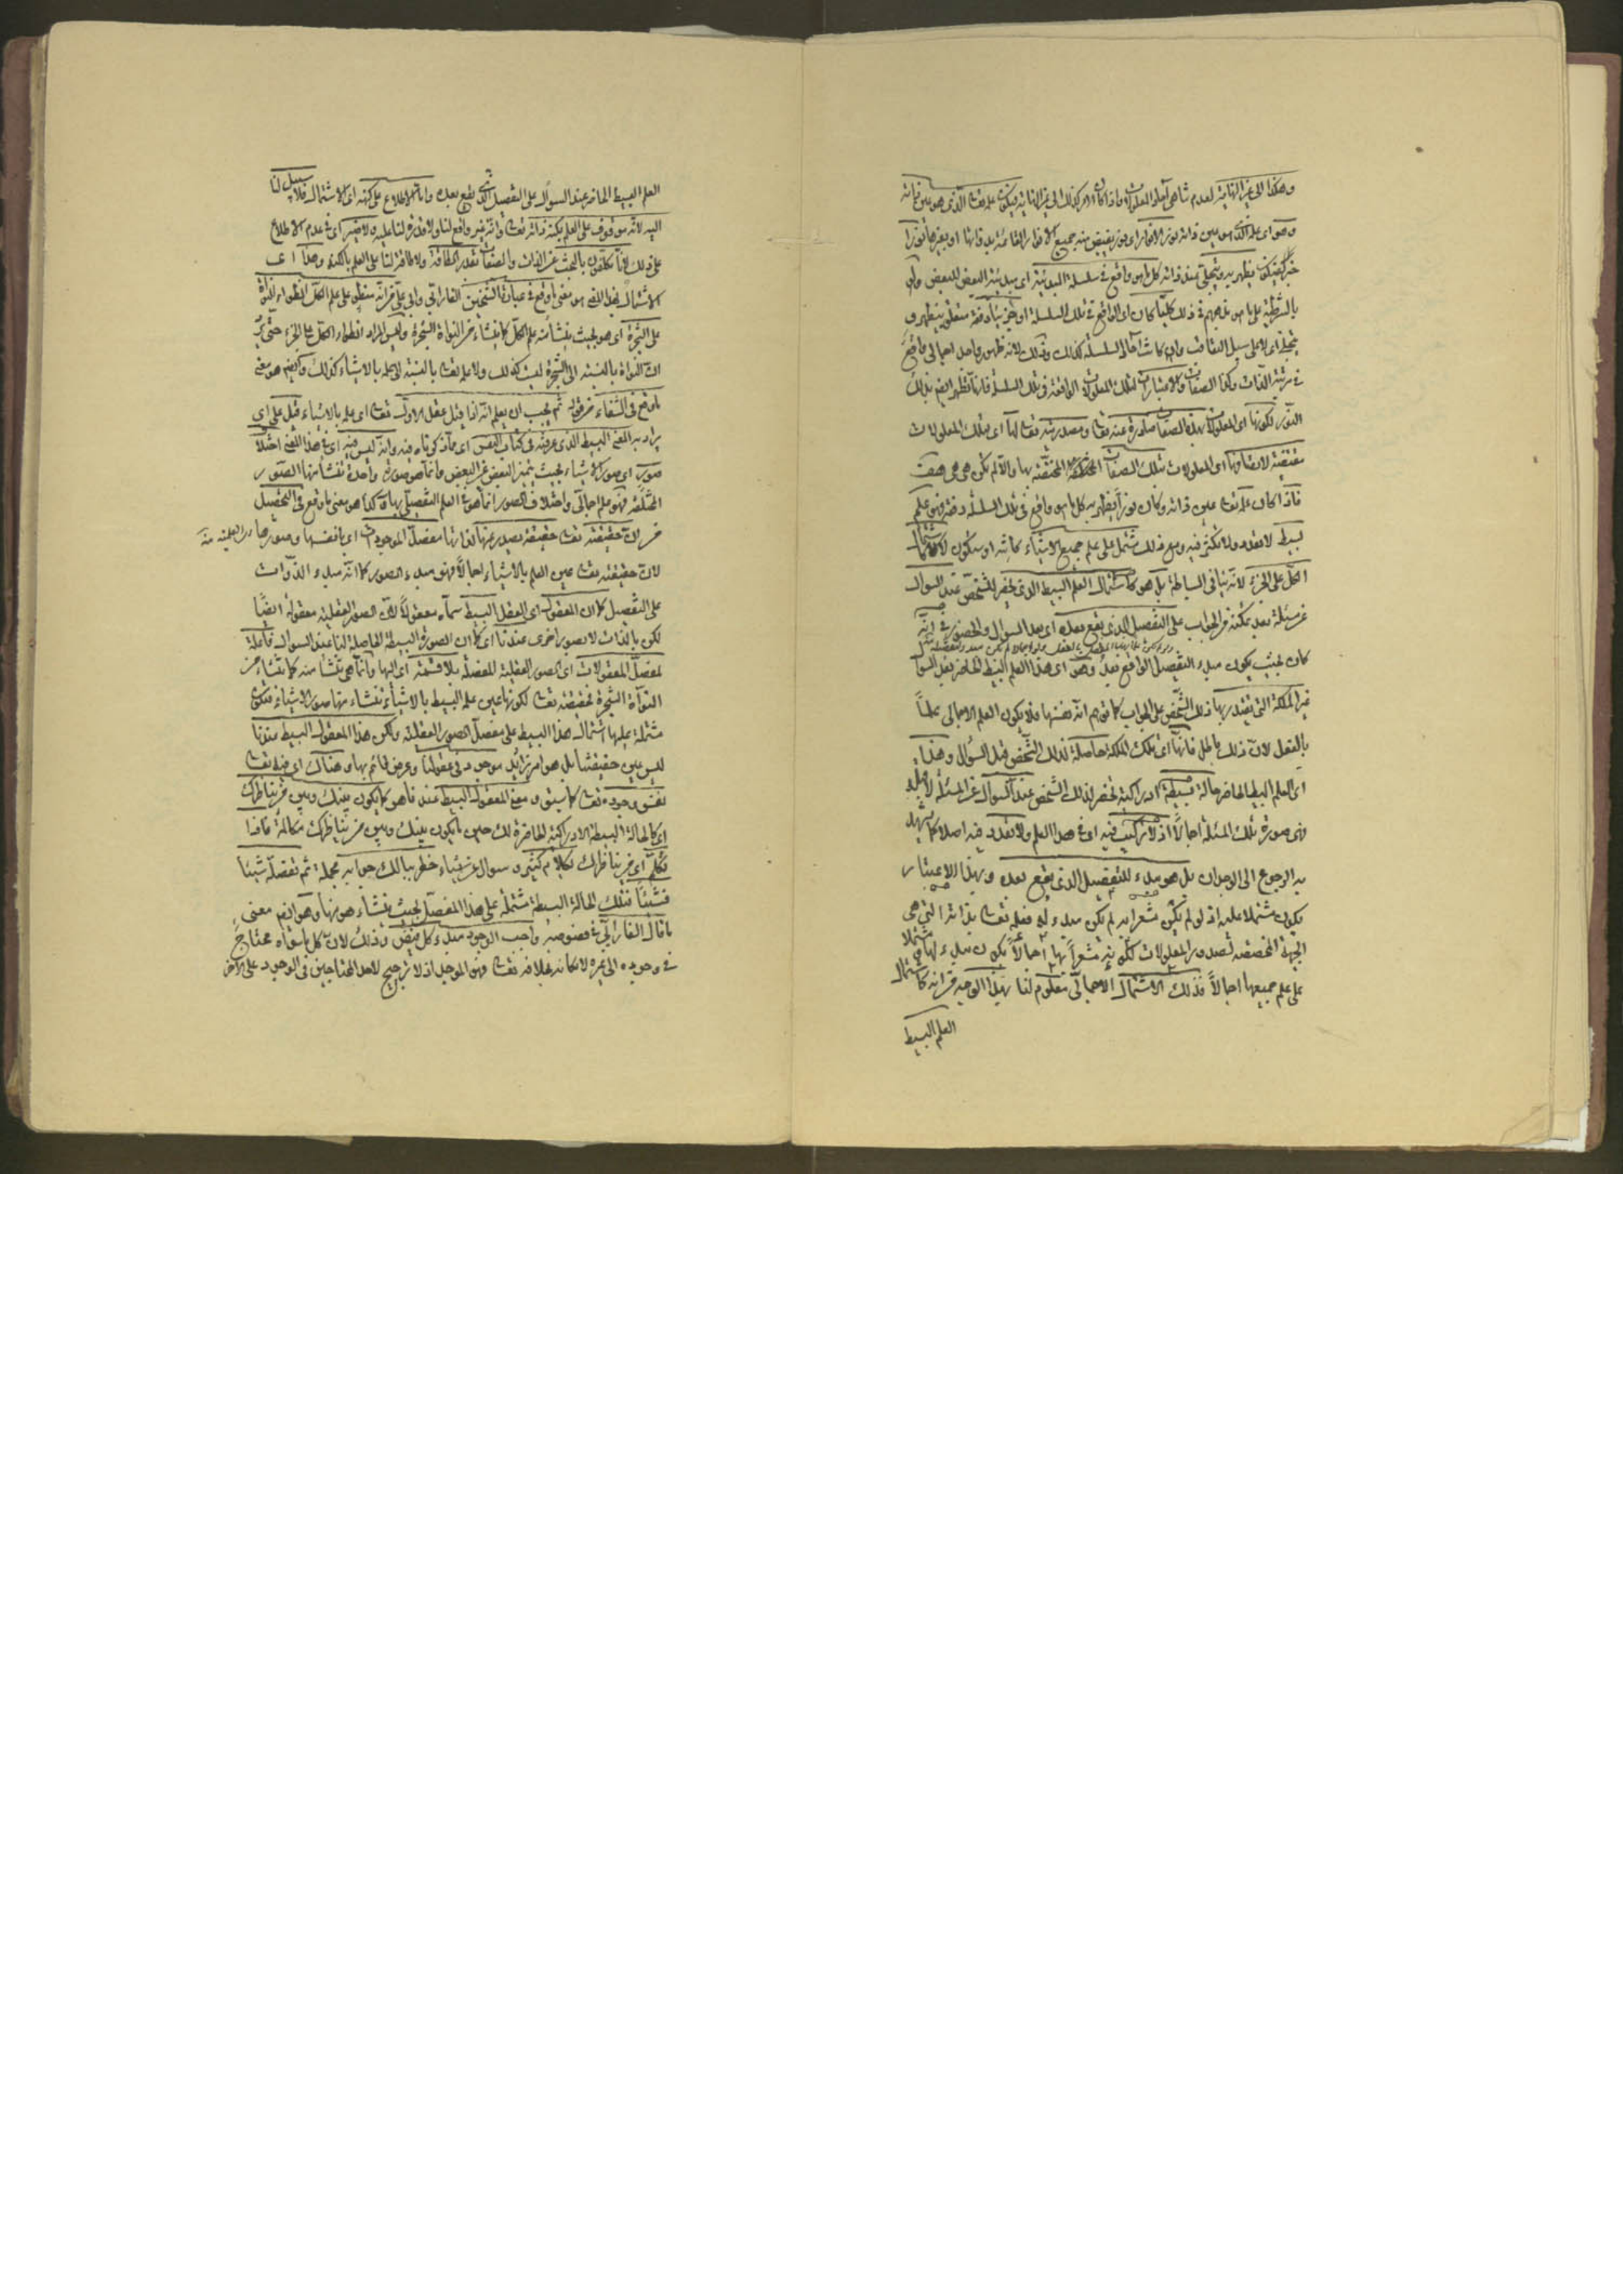 وهكذا الى غير النهاية لعدم تناهى آحاد المعلولات واذا كان الامر كذلك الى غير النهاية فيكون علمه تعالى الذى هو عين ذاته
وهو اى علمه الذى هو عين ذاته نور الانوار اى نور يفيض منه جميع الانوار القائمة بذواتها او بغيرها نورا
يظهر به ويتجلى عند ذاته كل ما هو واقع فى سلسلة المبدئية اى مبدئية البعض للبعض
كان اى الواقع فى تلك السلسلة او جزئيا دفعة متعلق بيظهر و
يتجلى اى لا على سبيل التعاقب وذلك لانه ظهور واحد اجمالى واقع
فى مرتبة الذات وكذا الصفات والاعتبارات لتلك المعلولات الواقعة فى تلك السلسلة فانها تظهر ايضا بذلك
النور لكونها اى المعلولات بهذه الصفات صادرة عنه تعالى ومصدريته تعالى لها اى بتلك المعلولات
مقتضية لاتصافها اى المعلولات بتلك الصفات المختصة بها والا لم تكن هى هى
فاذا كان علمه تعالى عين ذاته وكان نورا يظهر به كل ما هو واقع فى تلك السلسلة دفعة فهو علم
بسيط لا تعدد ولا تكثر فيه ومع ذلك مشتمل على علم جميع الاشياء كاشتمال
الكل على الجزء لانه ينافى البساطة بل هو كاشتمال العلم البسيط الذى يحضر للشخص عند السوال
عن مسئلة بعد تمكنه من الجواب على التفصيل الذى يقع بعده اى بعد السؤال والحضور فى انه
كان بحيث يكون مبدء التفصيل الواقع بعد وهو اى هذا العلم البسيط الحاضر بعد السؤال
غير الملكة التى يقتدر بها ذلك الشخص على الجواب كما توهم انه نفسها فلا يكون العلم الاجمالى علما
بالفعل لان ذلك باطل فانها اى تلك الملكة حاصلة لذلك الشخص قبل السؤال وهذا
اى العلم البسيط الحاضر حالة بسيطة ادراكية تحضر لذلك الشخص عند السوال عن المسئلة
وهى صورة تلك المسئلة اجمالا اذ لا تركيب فيه اى فى هذا العلم ولا تعدد فيه اصلا كما يشهد
به الرجوع الى الوجدان بل هو مبدء للتفصيل الذى يقع بعده وبهذا الاعتبار
يكون مشتملا عليه اذ لو لم يكن مشعرا به لم يكن مبدء له فعلمه تعالى بذاته التى هى
الجهة المخصصة لصدور المعلولات لكونه مشعرا بها اجمالا يكون مبدء لها مشتملا
على علم جميعها اجمالا فذلك الاشتمال الاجمالى معلوم لنا بهذا الوجه من انه كاشتمال
العلم البسيط
العلم البسيط الحاضر عند السؤال على التفصيل الذى يقع بعده واما الاطلاع على كنهه اى الاشتمال فلا سبيل لنا
اليه لانه موقوف على العلم بكنه ذاته تعالى وانه غير واقع لنا ولا قدرة لنا عليه ولا ضير اى فى عدم الاطلاع
على ذلك لانا مكلفون بالبحث عن الذات والصفات بقدر الطاقة ولا طاقة لنا على العلم بالكنه وهذا اى
الاشتمال بهذا المعنى هو معنى ما وقع فى عبارة الشيخين الفارابى وابى على من انه منطو على علم الكل انطواء النواة
على الشجرة اى هو بحيث ينشأ منه علم الكل كما ينشاء من النواة الشجرة وليس المراد انطواء الكل على الجزء حتى يرد
ان النواة بالنسبة الى الشجرة ليست كذلك ولا علمه تعالى بالنسبة الى علمه بالاشياء كذلك وايضا هو معنى
ما وقع فى الشفاء من قوله ثم يجب ان يعلم انه اذا قيل عقل للاول تعالى اى علمه بالاشياء قيل على اى
يراد به المعنى البسيط الذى عرفته فى كتاب النفس اى ما ذكرناه فيه وانه ليس فيه اى فى هذا المعنى اختلاف
صور اى صور الاشياء بحيث يتميز البعض عن البعض وانما هو صورة واحدة تنشأ منها الصور
المختلفة فهو علم اجمالى واختلاف الصور انما هو فى العلم التفصيلى بها وكذا هو معنى ما وقع فى التحصيل
من ان حقيقته تعالى حقيقة يصدر عنها لذاتها مفصل الموجودات اى بانفسها وصورها
لان حقيقته تعالى عين العلم بالاشياء اجمالا فهو مبدء الصور كما انه مبدء الذوات
على التفصيل كما ان المعقول اى العقل البسيط سماه معقولا لان الصور العقلية معقولة ايضا
لكن بالذات لا بصور اخرى عندنا اى كما ان الصورة البسيطة الحاصلة لنا عند السوال فاعلة
لمفصل المعقولات اى الصور العقلية المفصلة بلا قسمة اى اليها وانما هى تنشأ منه كما تنشاء من
النواة الشجرة فحقيقته تعالى لكونها عين علمه البسيط بالاشياء تنشاء منها صور الاشياء فتكون
مشتملة عليها اشتمال هذا البسيط على مفصل الصور العقلية ولكن هذا المعقول البسيط عندنا
ليس عين حقيقتنا بل هو امر زائد موجود فى عقولنا وعرض قائم بها وهناك اى فيه تعالى
نفس وجوده تعالى كما سبق ومعنى المعقول البسيط عندنا هو كما يكون بينك وبين من يناظرك
اى كالحالة البسيطة الادراكية الحاضرة لك حين ما يكون بينك وبين من يناظرك مكالمة فاذا
تكلم اى من يناظرك بكلام كثير وسوال عن شياء خطر ببالك جوابه مجملة ثم تفصله شيئا
فشيئا فتلك الحالة البسيطة مشتملة على هذا المفصل بحيث ينشاء هو منها وهو ايضا معنى
ما قال الفارابى فى فصوصه واجب الوجود مبدء كل فيض وذلك لان كل ما سواه محتاج
فى وجوده الى غيره لامكانه بخلافه تعالى فهو الموجد اذ لا ترجيح لاحد المحتاجين فى الوجود على الاخر